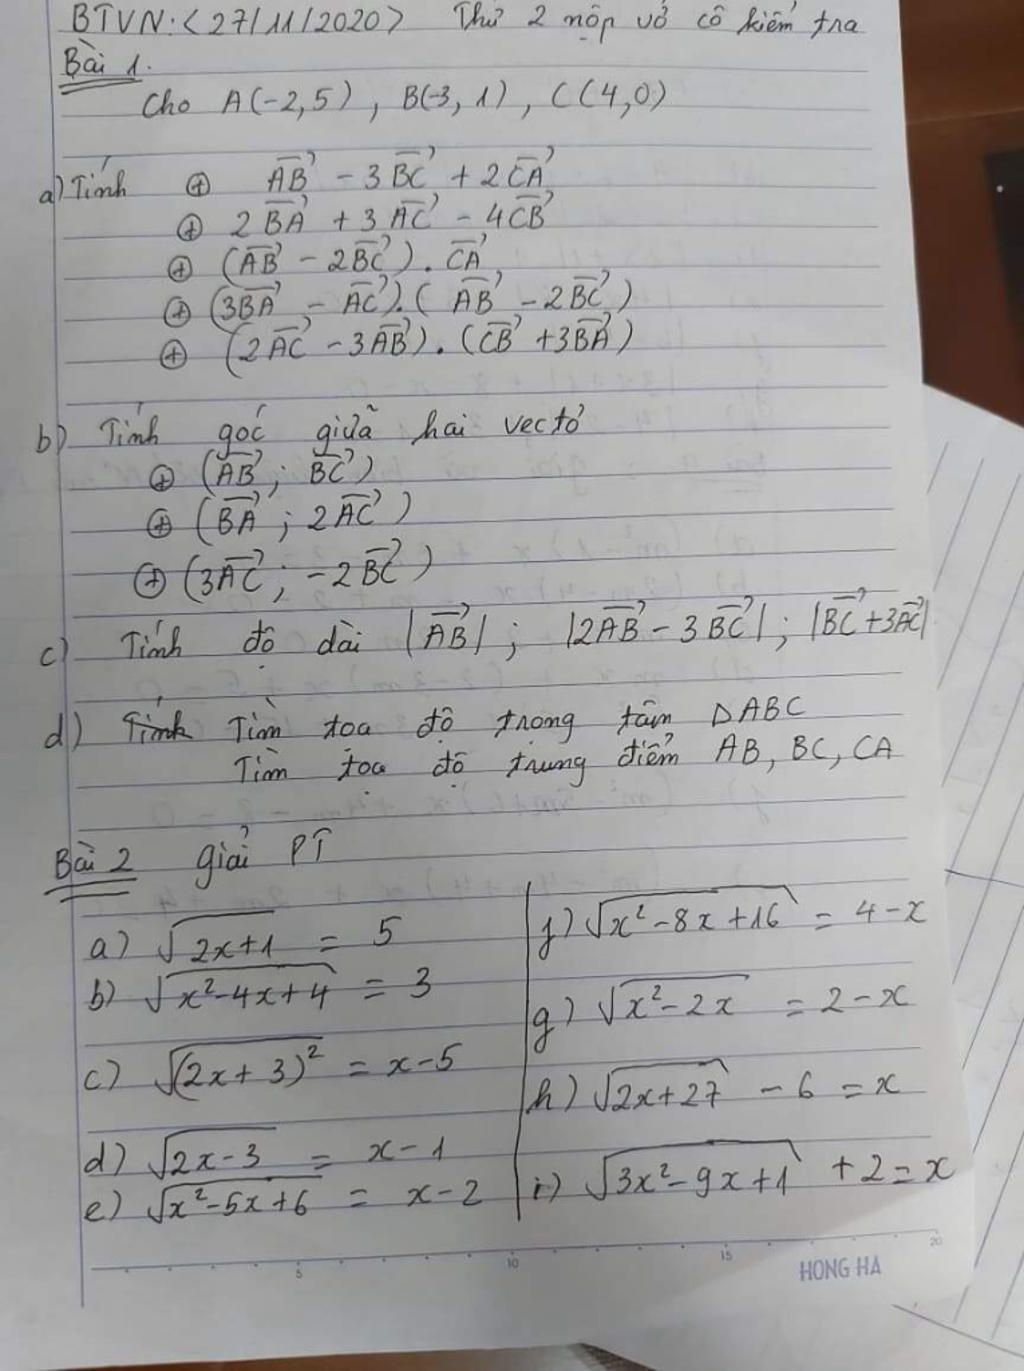 BTVN: <27/11/2020> Thứ 2 nộp vở cô kiểm tra
Bài 1.
Cho A(-2,5), B(-3,1), C(4,0)
a) Tính ⊕ \overrightarrow{AB} - 3\overrightarrow{BC} + 2\overrightarrow{CA}
⊕ 2\overrightarrow{BA} + 3\overrightarrow{AC} - 4\overrightarrow{CB}
⊕ (\overrightarrow{AB} - 2\overrightarrow{BC}).\overrightarrow{CA}
⊕ (3\overrightarrow{BA} - \overrightarrow{AC}).(\overrightarrow{AB} - 2\overrightarrow{BC})
⊕ (2\overrightarrow{AC} - 3\overrightarrow{AB}).(\overrightarrow{CB} + 3\overrightarrow{BA})
b) Tính góc giữa hai vectơ
⊕ (\overrightarrow{AB}; \overrightarrow{BC})
⊕ (\overrightarrow{BA}; 2\overrightarrow{AC})
⊕ (3\overrightarrow{AC}; -2\overrightarrow{BC})
c) Tính độ dài |\overrightarrow{AB}|; |2\overrightarrow{AB} - 3\overrightarrow{BC}|; |\overrightarrow{BC} + 3\overrightarrow{AC}|
d) Tính Tìm tọa độ trọng tâm ΔABC
Tìm tọa độ trung điểm AB, BC, CA
Bài 2 giải PT
a) √(2x+1) = 5
b) √(x²-4x+4) = 3
c) √((2x+3)²) = x-5
d) √(2x-3) = x-1
e) √(x²-5x+6) = x-2
f) √(x²-8x+16) = 4-x
g) √(x²-2x) = 2-x
h) √(2x+27) - 6 = x
i) √(3x²-9x+1) + 2 = x
5 10 15 20
HONG HA